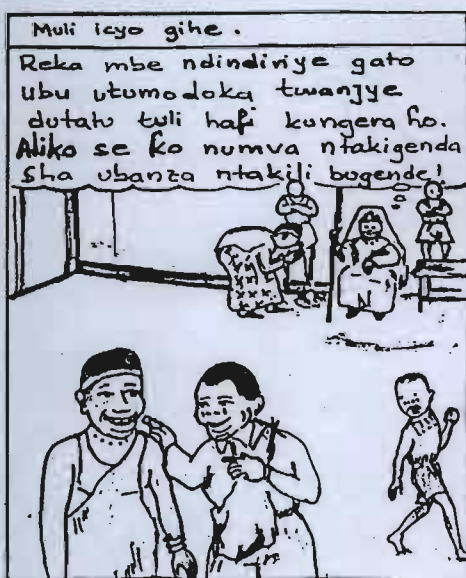 Muli icyo gihe.
Reka mbe ndindiriye gato
ubu utumodoka twanjye
dutatu tuli hafi kungera ho.
Aliko se ko numva ntakigenda
Sha ubanza ntakili bugende!